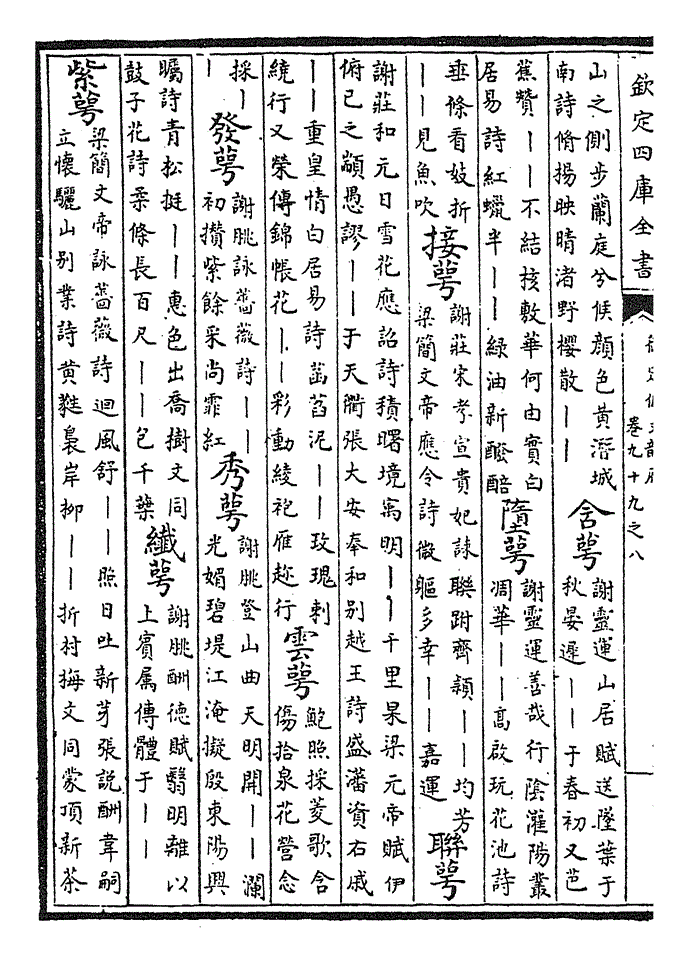 欽定四庫全書
卷九十九之八
山之側步蘭庭兮候顔色黄滔城
南詩脩揚映晴渚野櫻散丨丨
含萼
謝靈運山居賦送墜葉于
秋晏遲丨丨于春初又芭
蕉贊丨丨不結核敷華何由實白
居易詩紅蠟半丨丨綠油新醱醅
墮萼
謝靈運善哉行隂灌陽叢
凋華丨丨高啟玩花池詩
垂條看妓折
丨丨見魚吹
接萼
謝莊宋孝宣貴妃誄聯跗齊穎丨丨均芳
梁簡文帝應令詩微軀多幸丨丨嘉運
聯萼
謝莊和元日雪花應詔詩積曙境寓明丨丨千里杲梁元帝賦伊
俯已之顓愚謬丨丨于天衢張大安奉和别越王詩盛藩資右戚
丨丨重皇情白居易詩菡萏泥丨丨玫瑰刺
繞行又榮傳錦帳花丨丨彩動綾袍雁趁行
雲萼
鮑照採菱歌含
傷拾泉花營念
採丨
丨
發萼
謝朓詠薔薇詩丨丨
初攢紫餘采尚霏紅
秀萼
謝朓登山曲天明開丨丨瀾
光媚碧堤江淹擬殷東陽興
矚詩青松挺丨丨惠色出喬樹文同
鼓子花詩柔條長百尺丨丨包千葉
纖萼
謝朓酬德賦翳明離以
上賓属傳體于丨丨
紫萼
梁簡文帝詠薔薇詩迴風舒丨丨照日吐新芽張説酬韋嗣
立懷驪山别業詩黄蕤裊岸柳丨丨折村梅文同蒙頂新茶